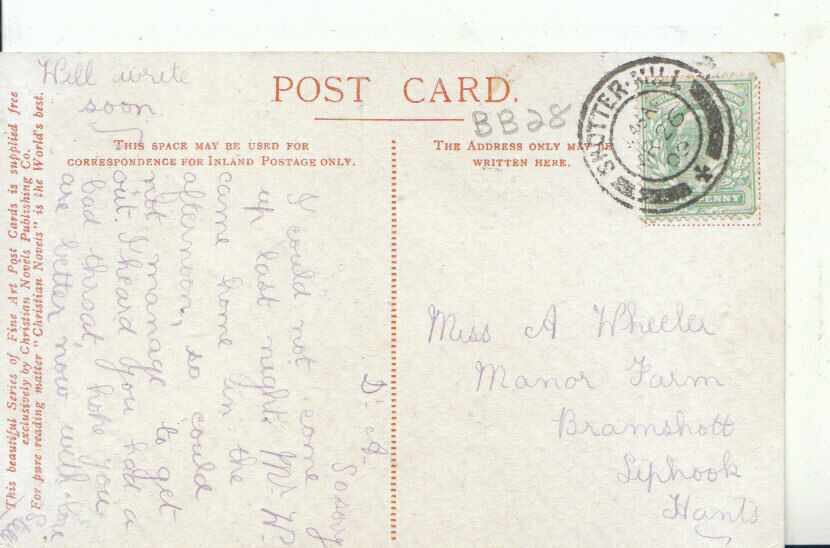 Will write
soon
POST CARD.
BB28
THIS SPACE MAY BE USED FOR
CORRESPONDENCE FOR INLAND POSTAGE ONLY.
THE ADDRESS ONLY MAY BE
WRITTEN HERE.
SHOTTER-MILL
26
09
PENNY
This beautiful Series of Fine Art Post Cards is supplied free
exclusively by Christian Novels Publishing Co.
For pure reading matter "Christian Novels" is the World's best.
D. A.
So sorry
I could not come
up last night. Mr. W.
came home in the
afternoon, so could
not manage to get
out. I heard you had a
bad throat, hope you
are better now with love
Miss A Wheeler
Manor Farm
Bramshott
Liphook
Hants